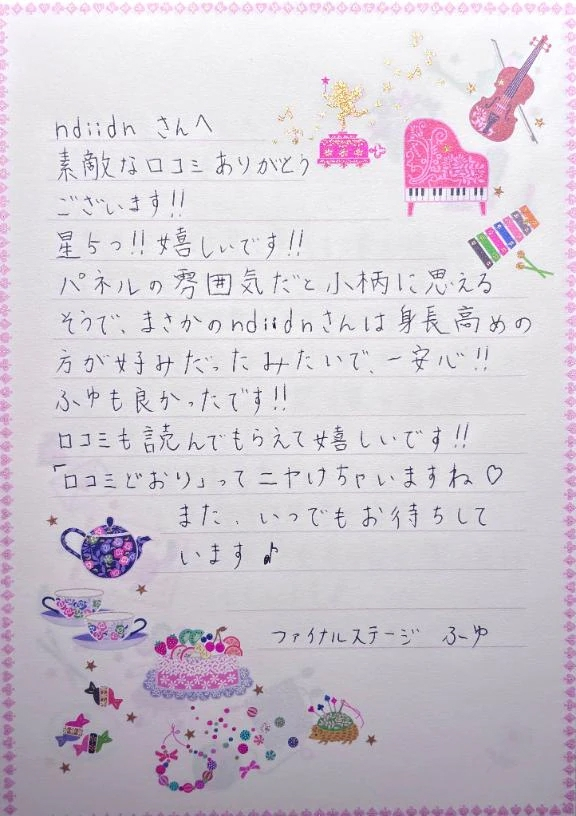 ndiidn さんへ
素敵な口コミありがとう
ございます!!
星5つ!!嬉しいです!!
パネルの雰囲気だと小柄に思える
そうで、まさかのndiidnさんは身長高めの
方が好みだったみたいで、一安心!!
ふゆも良かったです!!
口コミも読んでもらえて嬉しいです!!
「口コミどおり」ってニヤけちゃいますね♡
また、いつでもお待ちして
います♪
ファイナルステージ ふーゆ